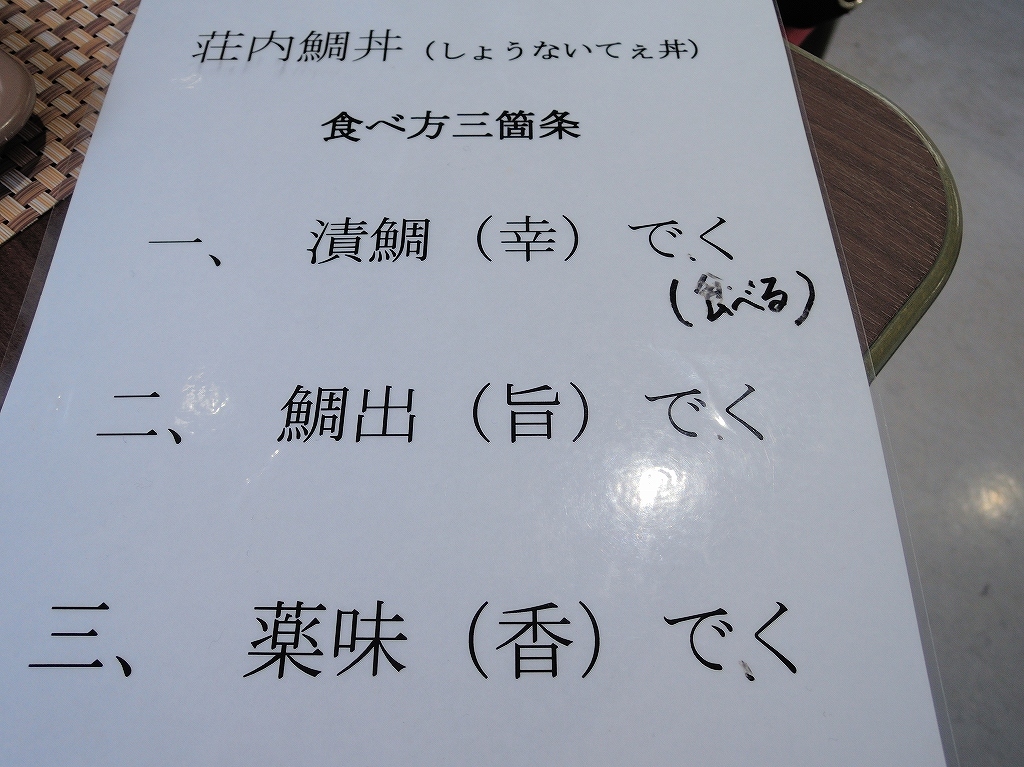 荘内鯛丼（しょうないてぇ丼）
食べ方三箇条
一、 漬鯛（幸）でく
（食べる）
二、 鯛出（旨）でく
三、 薬味（香）でく